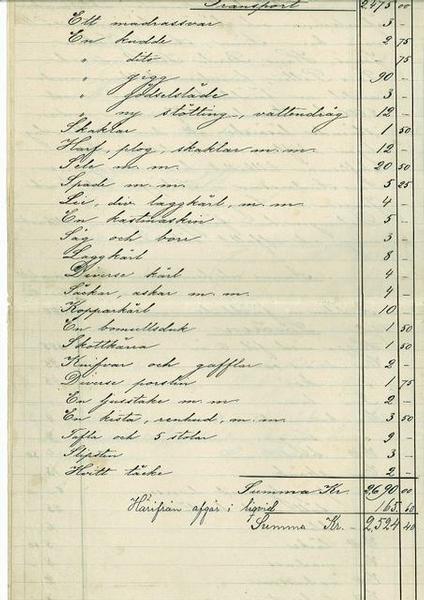 Transport 2475 00
Ett madrassvar 3 -
En kudde 2 75
" dito 75
" gigg 90 -
" gödselsläde 3 -
" ny stötting, vattendrag 12 -
Skaklar 1 50
Harf, plog, skaklar m.m. 12 -
Sele m.m. 20 50
Spade m.m. 5 25
Lie, div. laggkärl, m.m. 4 -
En kastmaskin 5 -
Såg och borr 3 -
Laggkärl 8 -
Diverse kärl 4 -
Säckar, askar m.m. 4 -
Kopparkärl 10 -
En bomullsduk 1 50
Skottkärra 1 50
Knifvar och gafflar 2 -
Diverse porslin 1 75
En ljusstake m.m. 2 -
En kista, renhud, m.m. 3 50
Tafla och 5 stolar 9 -
Slipsten 3 -
Hvitt täcke 2 -
Summa Kr. 2690 00
Härifrån afgår i liqvid 165.60
Summa Kr. 2,524 40